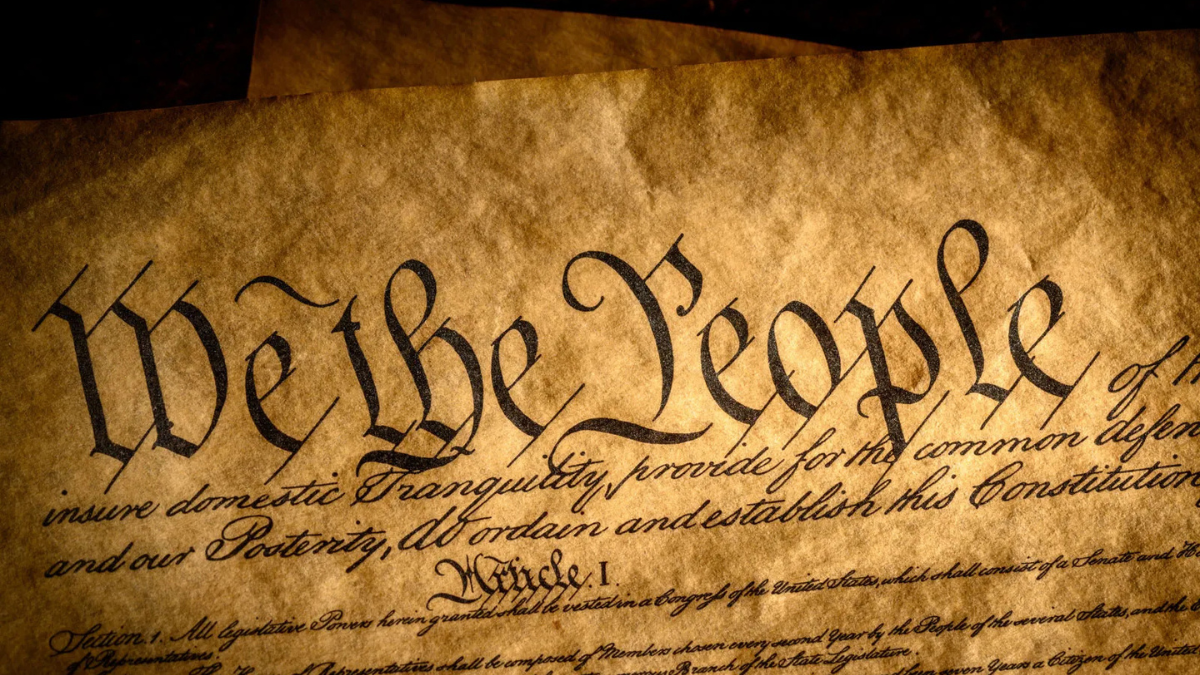 We the People of th
insure domestic Tranquility, provide for the common defen
and our Posterity, do ordain and establish this Constitution
Article. I.
Section. 1. All legislative Powers herein granted shall be vested in a Congress of the United States, which shall consist of a Senate and Ho
of Representatives.
Representatives shall be composed of Members chosen every second Year by the People of the several States, and the
Branch of the State Legislature.
seven Years a Citizen of the United